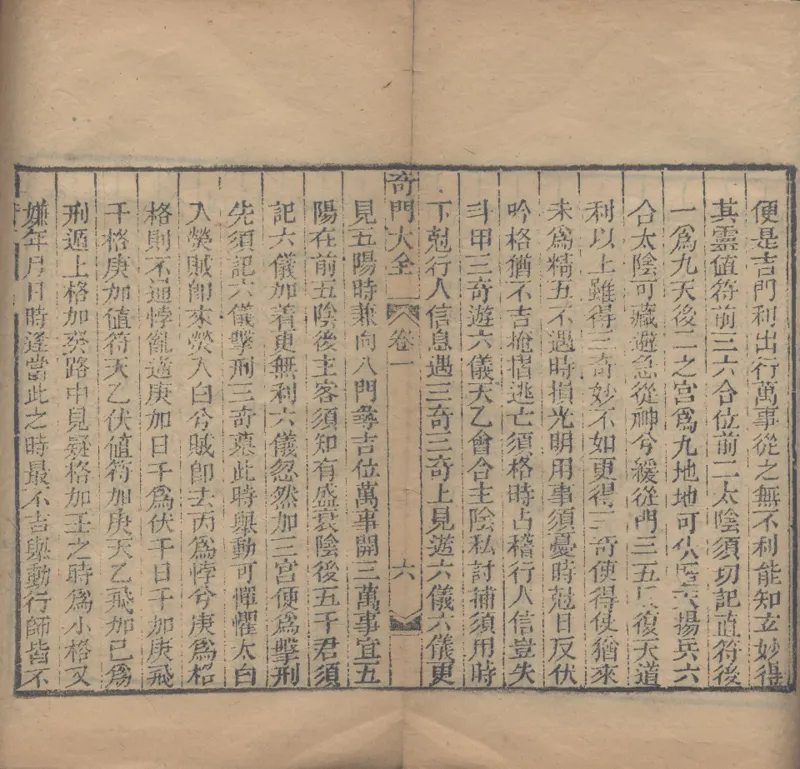 便是吉門利出行萬事從之無不利能知玄妙得
其靈値符前三六合位前二太陰須切記直符後
一爲九天後二之宮爲九地地可揚兵六
合太陰可藏避急從神兮緩從門三五復天道
利以上雖得三奇妙不如更得三奇使得使猶來
未爲精五不遇時損光明用事須憂時尅日反伏
吟格猶不吉掩摺逃亡須格時占稽行人信豈失
斗甲三奇遊六儀天乙會合主陰私討捕須用時
下尅行人信息遇三奇三奇上見遊六儀六儀更
奇門大全 卷一 六
見五陽時兼向八門尋吉位萬事開三萬事宜五
陽在前五陰後主客須知有盛衰陰後五干君須
記六儀加着更無利六儀忽然加三宮便爲擊刑
先須記六儀擊刑三奇墓此時舉動可憚懼太白
入熒賊卽來熒入白兮賊卽去丙爲悖兮庚爲格
格則不通悖亂逆庚加日干爲伏干日干加庚飛
干格庚加値符天乙伏値符加庚天乙飛加己爲
刑遁上格加癸路中見疑格加壬之時爲小格又
嫌年月日時逢當此之時最不吉舉動行師皆不